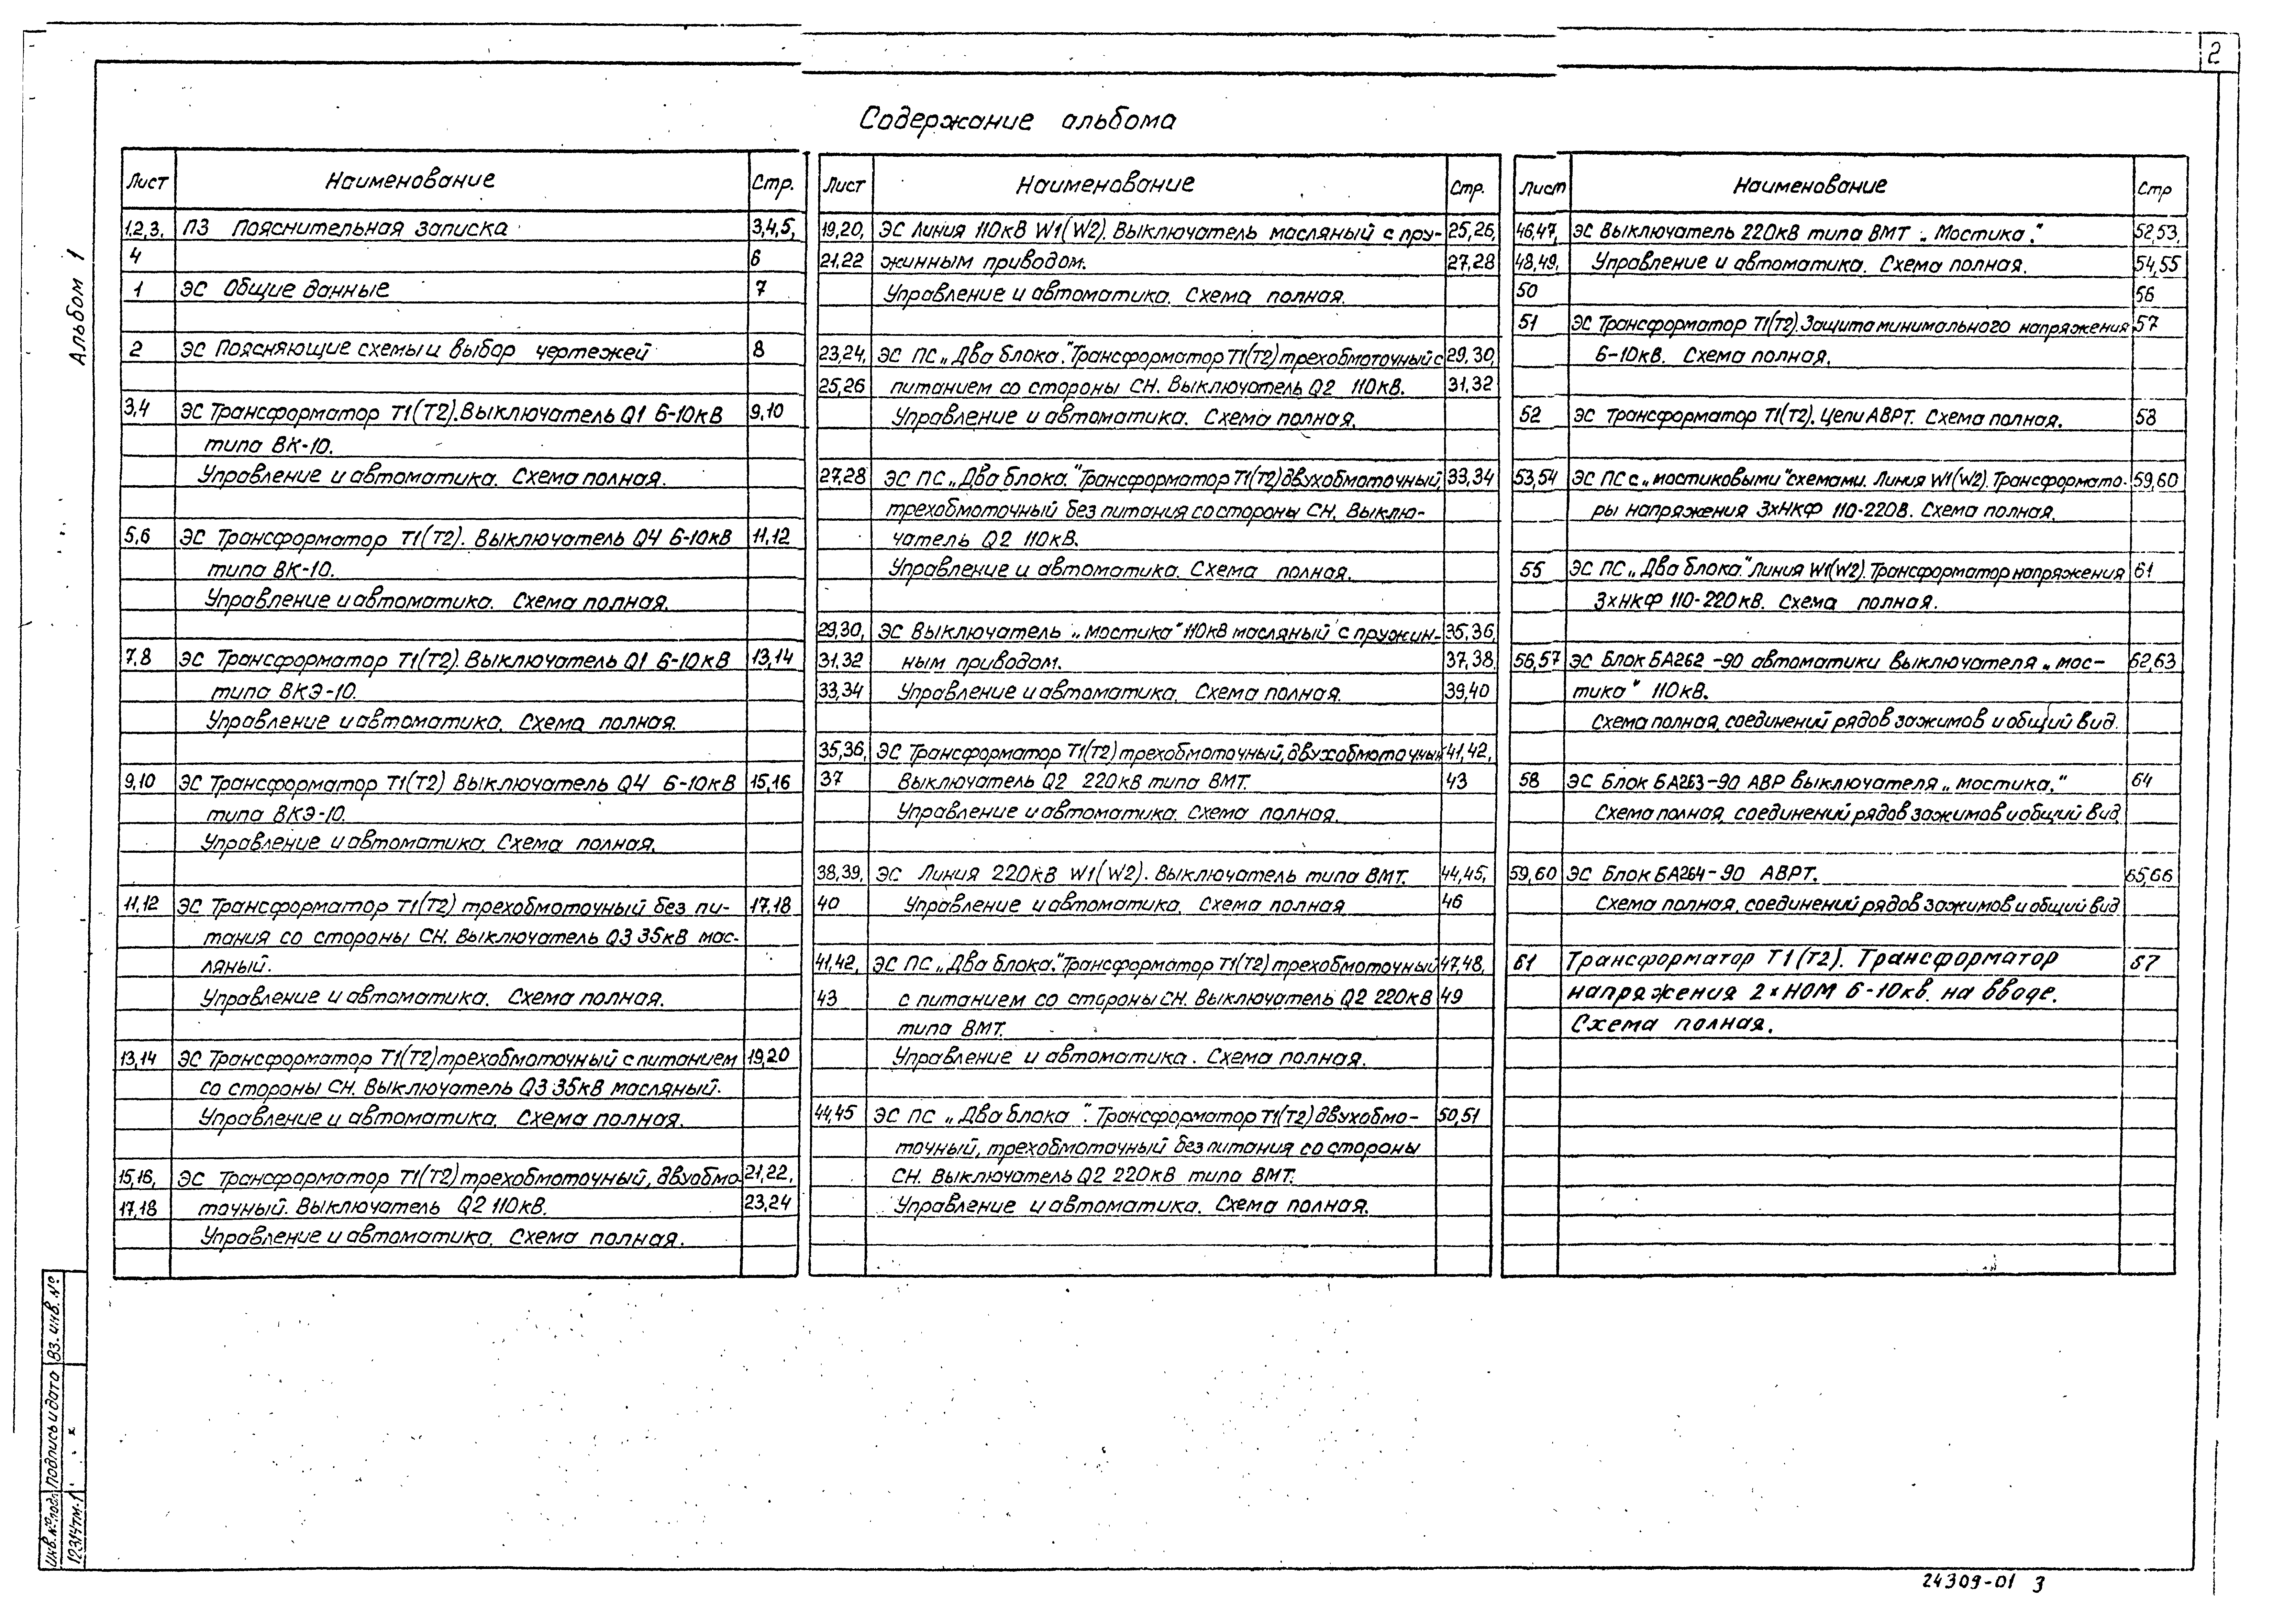 2
Содержание альбома
Альбом 1
Лист Наименование Стр.
1,2,3, ПЗ Пояснительная записка 3,4,5,
4 6
1 ЭС Общие данные 7
2 ЭС Поясняющие схемы и выбор чертежей 8
3,4 ЭС Трансформатор Т1(Т2). Выключатель Q1 6-10кВ 9,10
типа ВК-10.
Управление и автоматика. Схема полная.
5,6 ЭС Трансформатор Т1(Т2). Выключатель Q4 6-10кВ 11,12
типа ВК-10.
Управление и автоматика. Схема полная.
7,8 ЭС Трансформатор Т1(Т2). Выключатель Q1 6-10кВ 13,14
типа ВКЭ-10.
Управление и автоматика. Схема полная.
9,10 ЭС Трансформатор Т1(Т2) Выключатель Q4 6-10кВ 15,16
типа ВКЭ-10.
Управление и автоматика. Схема полная.
11,12 ЭС Трансформатор Т1(Т2) трехобмоточный без пи- 17,18
тания со стороны СН. Выключатель Q3 35кВ мас-
ляный.
Управление и автоматика. Схема полная.
13,14 ЭС Трансформатор Т1(Т2) трехобмоточный с питанием 19,20
со стороны СН. Выключатель Q3 35кВ масляный.
Управление и автоматика. Схема полная.
15,16, ЭС Трансформатор Т1(Т2) трехобмоточный, двуобмо- 21,22,
17,18 точный. Выключатель Q2 110кВ. 23,24
Управление и автоматика. Схема полная.
Лист Наименование Стр.
19,20, ЭС Линия 110кВ W1(W2). Выключатель масляный с пру- 25,26,
21,22 жинным приводом. 27,28
Управление и автоматика. Схема полная.
23,24, ЭС ПС „Два блока." Трансформатор Т1(Т2) трехобмоточный с 29,30,
25,26 питанием со стороны СН. Выключатель Q2 110кВ. 31,32
Управление и автоматика. Схема полная.
27,28 ЭС ПС „Два блока." Трансформатор Т1(Т2) двухобмоточный, 33,34
трехобмоточный без питания со стороны СН. Выклю-
чатель Q2 110кВ.
Управление и автоматика. Схема полная.
29,30, ЭС Выключатель „мостика" 110кВ масляный с пружин- 35,36,
31,32 ным приводом. 37,38,
33,34 Управление и автоматика. Схема полная. 39,40
35,36, ЭС Трансформатор Т1(Т2) трехобмоточный, двухобмоточный 41,42,
37 Выключатель Q2 220кВ типа ВМТ. 43
Управление и автоматика. Схема полная.
38,39, ЭС Линия 220кВ W1(W2). Выключатель типа ВМТ. 44,45,
40 Управление и автоматика. Схема полная 46
41,42, ЭС ПС „Два блока." Трансформатор Т1(Т2) трехобмоточный 47,48,
43 с питанием со стороны СН. Выключатель Q2 220кВ 49
типа ВМТ.
Управление и автоматика. Схема полная.
44,45 ЭС ПС „Два блока ". Трансформатор Т1(Т2) двухобмо- 50,51
точный, трехобмоточный без питания со стороны
СН. Выключатель Q2 220кВ типа ВМТ.
Управление и автоматика. Схема полная.
Лист Наименование Стр
46,47, ЭС Выключатель 220кВ типа ВМТ „Мостика." 52,53,
48,49, Управление и автоматика. Схема полная. 54,55
50 56
51 ЭС Трансформатор Т1(Т2). Защита минимального напряжения 57
6-10кВ. Схема полная.
52 ЭС Трансформатор Т1(Т2). Цепи АВРТ. Схема полная. 58
53,54 ЭС ПС с „мостиковыми" схемами. Линия W1(W2). Трансформато- 59,60
ры напряжения 3хНКФ 110-220В. Схема полная.
55 ЭС ПС „Два блока." Линия W1(W2). Трансформатор напряжения 61
3хНКФ 110-220кВ. Схема полная.
56,57 ЭС Блок БА262-90 автоматики выключателя „мос- 62,63
тика" 110кВ.
Схема полная, соединений рядов зажимов и общий вид.
58 ЭС Блок БА263-90 АВР выключателя „мостика." 64
Схема полная, соединений рядов зажимов и общий вид
59,60 ЭС Блок БА264-90 АВРТ. 65,66
Схема полная, соединений рядов зажимов и общий вид
61 Трансформатор Т1(Т2). Трансформатор 67
напряжения 2хНОМ 6-10кВ. на вводе.
Схема полная.
Инв. № подл. Подпись и дата Вз. инв. №
12314тм-1
24309-01 3